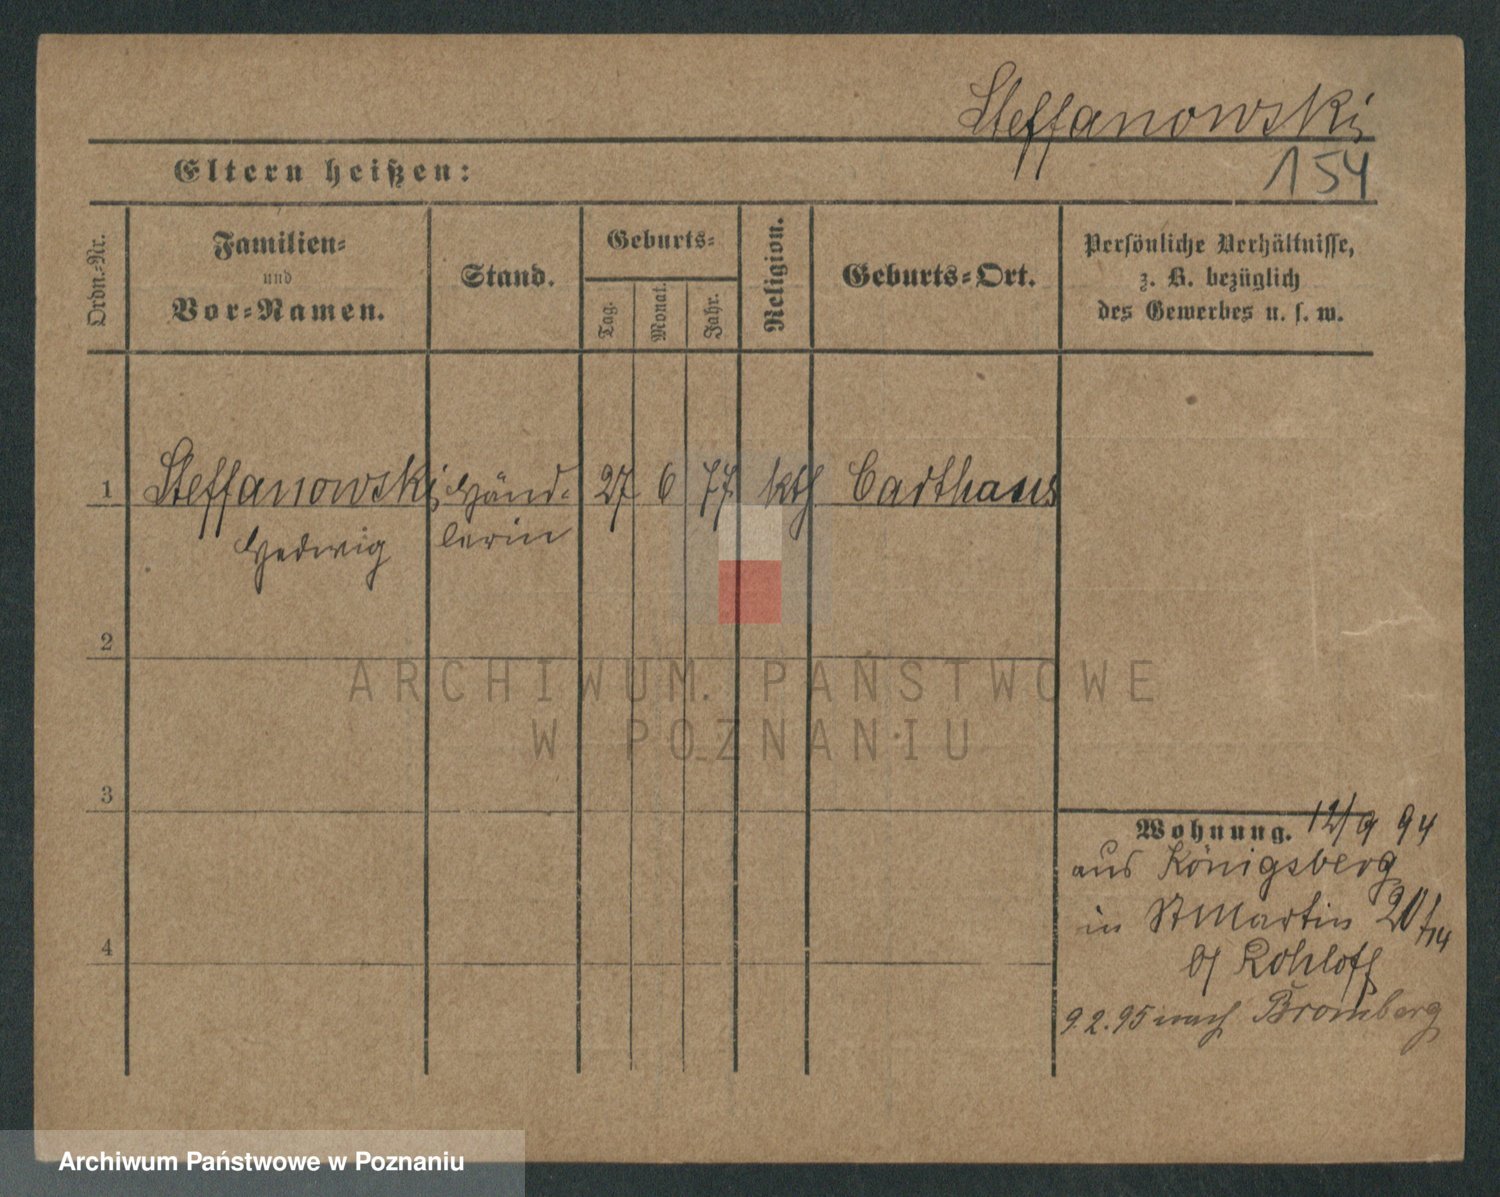 Steffanowski
154
Eltern heißen:
Ordn.-Nr.
Familien-
und
Vor-Namen.
Stand.
Geburts-
Tag.
Monat.
Jahr.
Religion.
Geburts-Ort.
Persönliche Verhältnisse,
z. B. bezüglich
des Gewerbes u. s. w.
1 Steffanowski Händ- 27 6 77 kth. Carthaus
Hedwig lerin
2
3
4
Wohnung. 12/9 94
aus Königsberg
in St Martin 20/
b/ Rohloff
9.2.95 nach Bromberg
ARCHIWUM PAŃSTWOWE
W POZNANIU
Archiwum Państwowe w Poznaniu